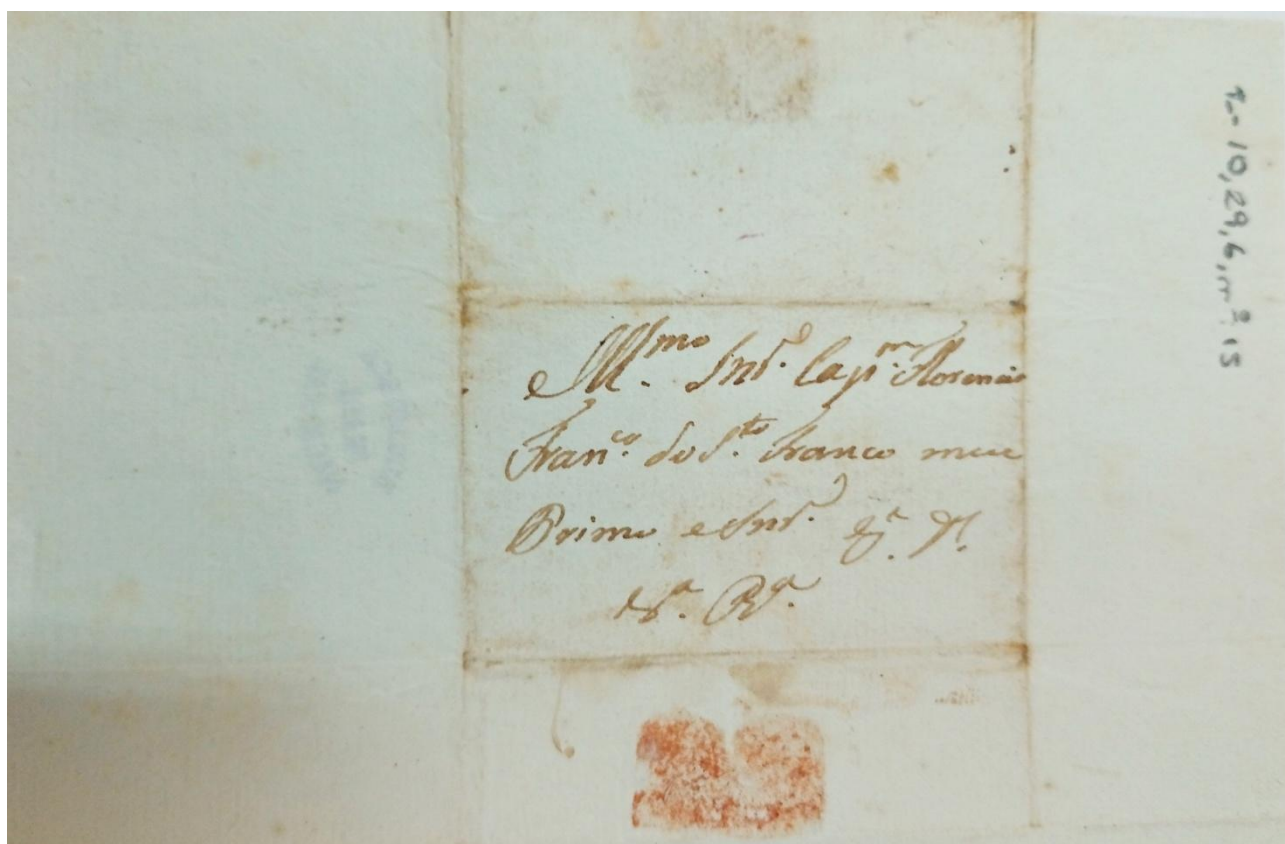 Illmo Snr. Capm. Florencio
Franco. do S.to Franco meu
Primo e Snr. Ga. Ds.
10,29,6, nº 15